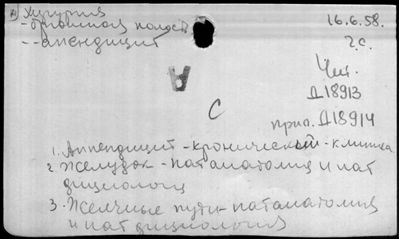 Хирургия
- брюшная полость
- - апендицит
16.6.58.
2.с.
Чит.
Д18913
прил. Д18914
А
С
1. Аппендицит - хронический - клиника
2. Желудок - патанатомия и пат
физиология
3. Желчные пути - патанатомия
и пат физиология